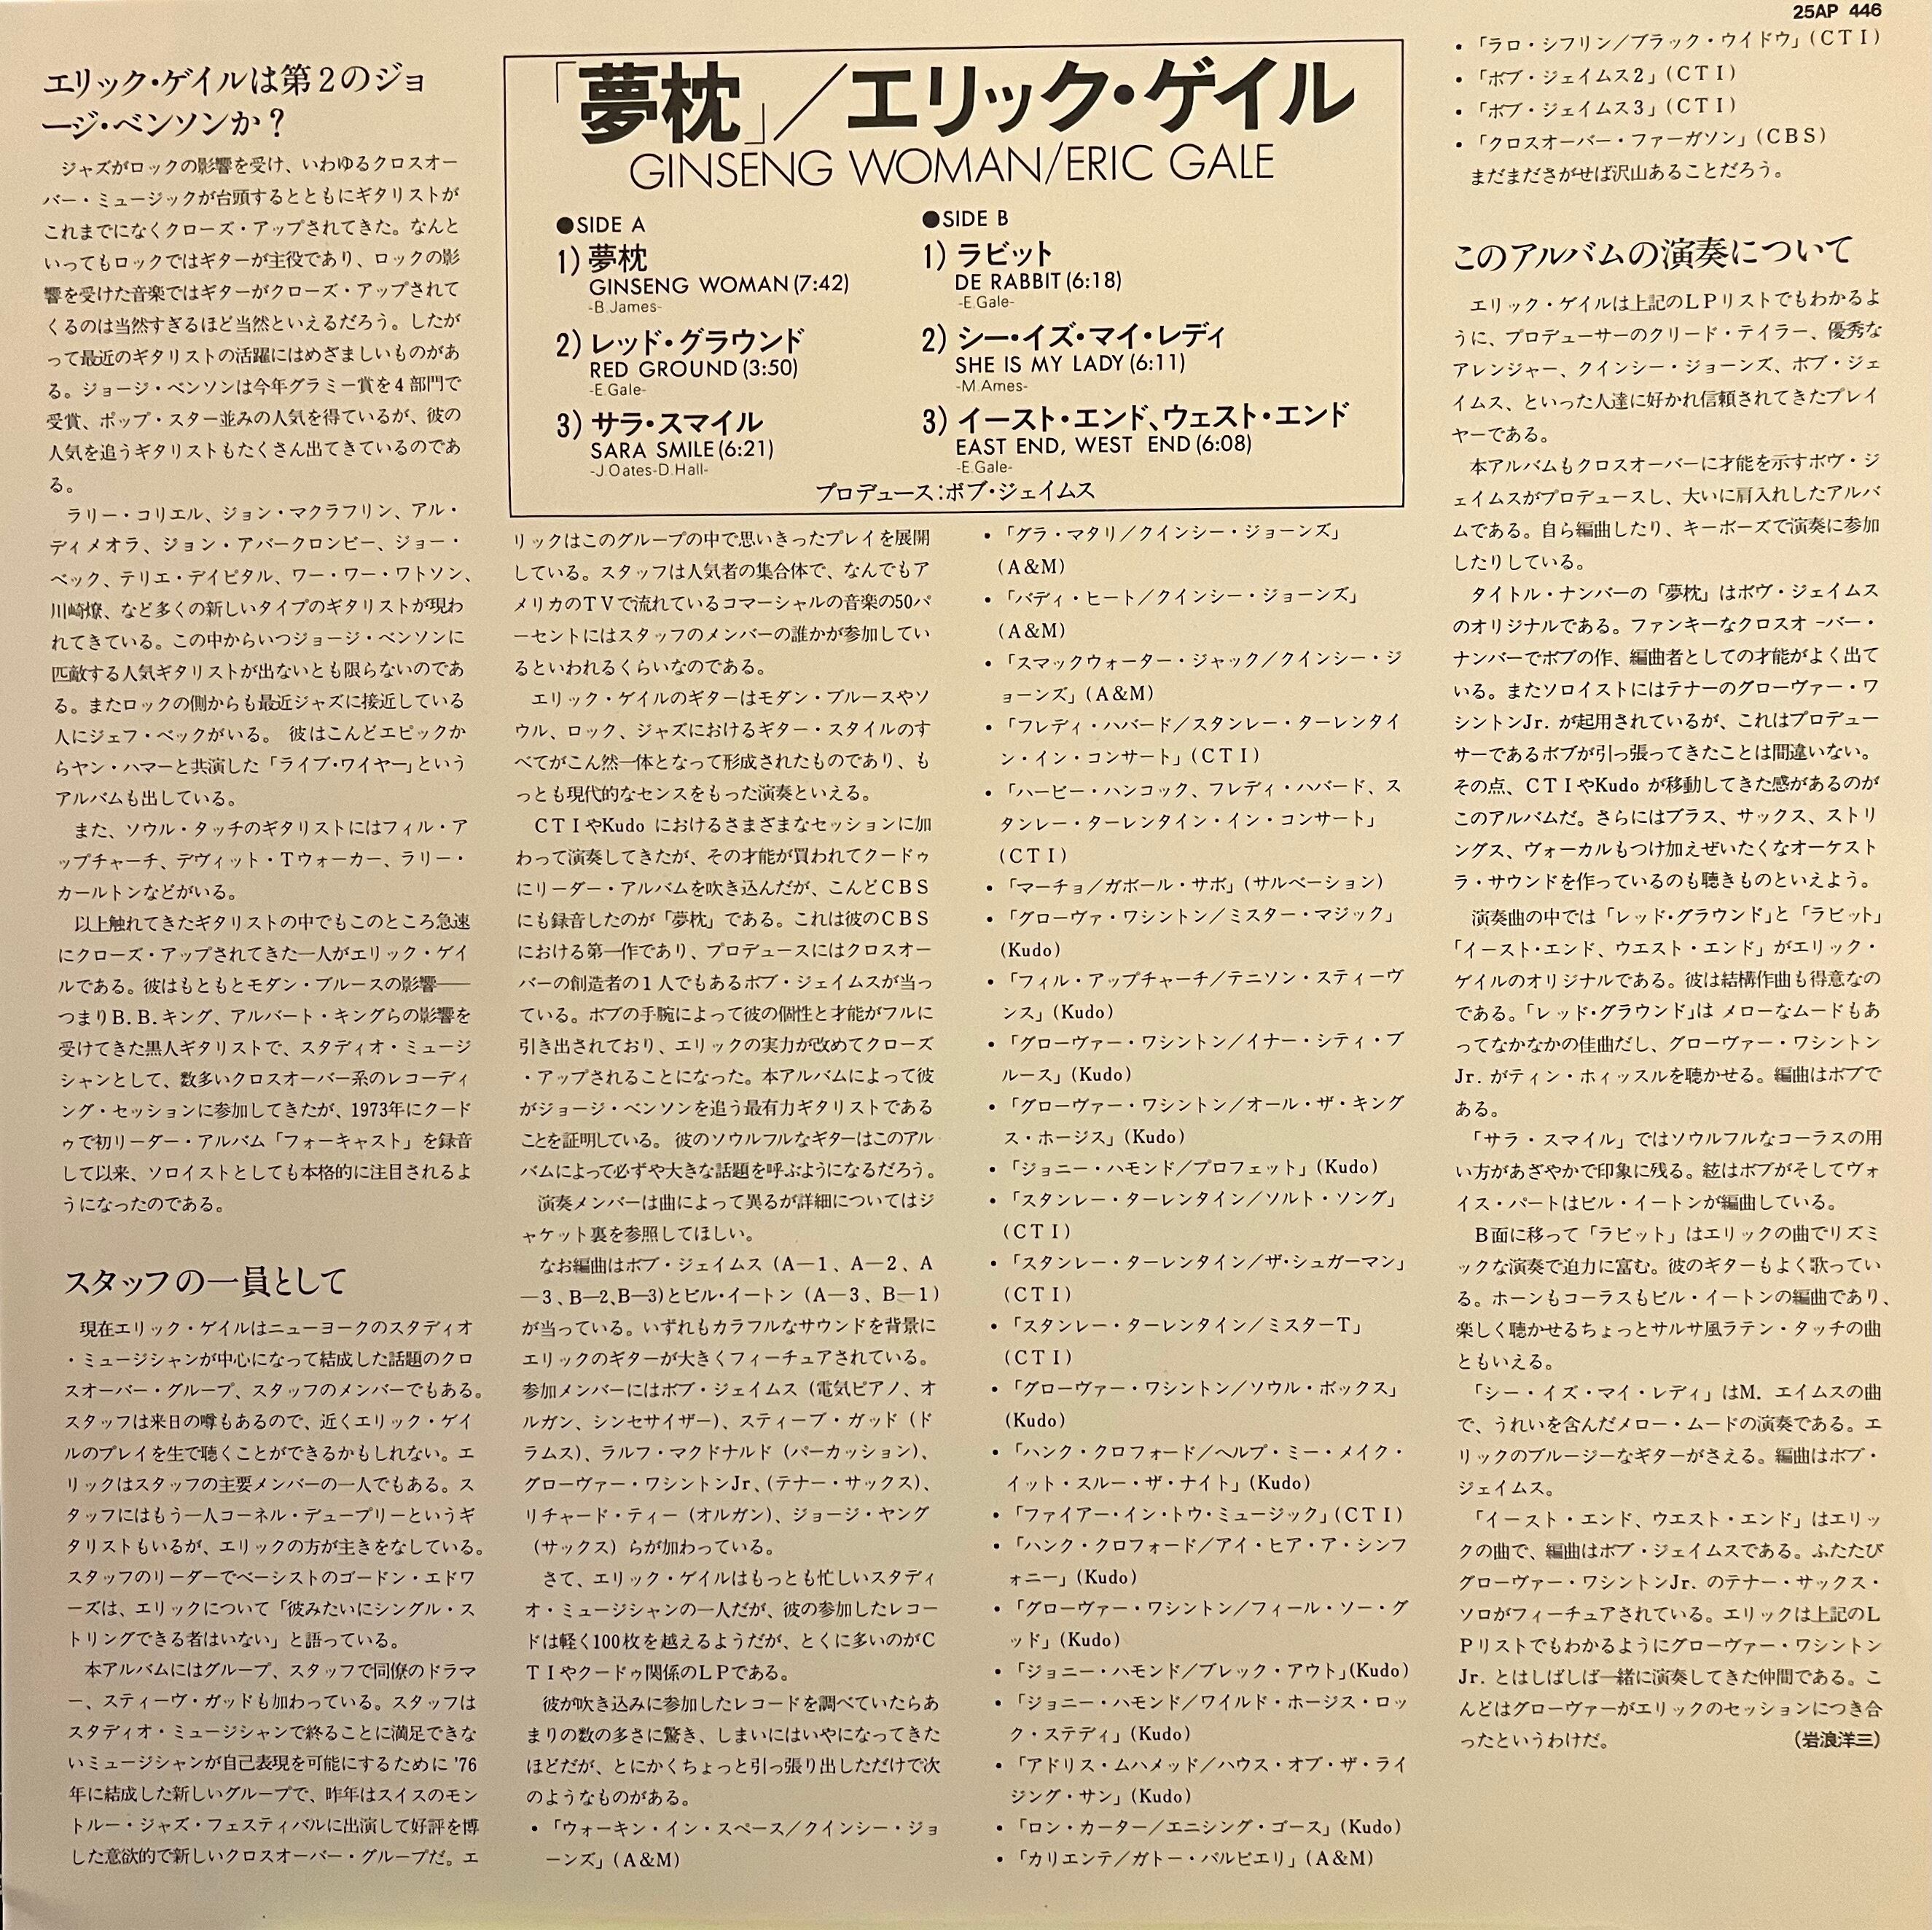 25AP 446
エリック・ゲイルは第2のジョ
ージ・ベンソンか？
ジャズがロックの影響を受け、いわゆるクロスオー
バー・ミュージックが台頭するとともにギタリストが
これまでになくクローズ・アップされてきた。なんと
いってもロックではギターが主役であり、ロックの影
響を受けた音楽ではギターがクローズ・アップされて
くるのは当然すぎるほど当然といえるだろう。したが
って最近のギタリストの活躍にはめざましいものがあ
る。ジョージ・ベンソンは今年グラミー賞を4部門で
受賞、ポップ・スター並みの人気を得ているが、彼の
人気を追うギタリストもたくさん出てきているのであ
る。
ラリー・コリエル、ジョン・マクラフリン、アル・
ディメオラ、ジョン・アバークロンビー、ジョー・
ベック、テリエ・デイピタル、ワー・ワー・ワトソン、
川崎燎、など多くの新しいタイプのギタリストが現わ
れてきている。この中からいつジョージ・ベンソンに
匹敵する人気ギタリストが出ないとも限らないのであ
る。またロックの側からも最近ジャズに接近している
人にジェフ・ベックがいる。 彼はこんどエピックか
らヤン・ハマーと共演した「ライブ・ワイヤー」という
アルバムも出している。
また、ソウル・タッチのギタリストにはフィル・ア
ップチャーチ、デヴィット・Tウォーカー、ラリー・
カールトンなどがいる。
以上触れてきたギタリストの中でもこのところ急速
にクローズ・アップされてきた一人がエリック・ゲイ
ルである。彼はもともとモダン・ブルースの影響――
つまりB.B.キング、アルバート・キングらの影響を
受けてきた黒人ギタリストで、スタディオ・ミュージ
シャンとして、数多いクロスオーバー系のレコーディ
ング・セッションに参加してきたが、1973年にクード
ゥで初リーダー・アルバム「フォーキャスト」を録音
して以来、ソロイストとしても本格的に注目されるよ
うになったのである。
スタッフの一員として
現在エリック・ゲイルはニューヨークのスタディオ
・ミュージシャンが中心になって結成した話題のクロ
スオーバー・グループ、スタッフのメンバーでもある。
スタッフは来日の噂もあるので、近くエリック・ゲイ
ルのプレイを生で聴くことができるかもしれない。エ
リックはスタッフの主要メンバーの一人でもある。ス
タッフにはもう一人コーネル・デュープリーというギ
タリストもいるが、エリックの方が主きをなしている。
スタッフのリーダーでベーシストのゴードン・エドワ
ーズは、エリックについて「彼みたいにシングル・ス
トリングできる者はいない」と語っている。
本アルバムにはグループ、スタッフで同僚のドラマ
ー、スティーヴ・ガッドも加わっている。スタッフは
スタディオ・ミュージシャンで終ることに満足できな
いミュージシャンが自己表現を可能にするために '76
年に結成した新しいグループで、昨年はスイスのモン
トルー・ジャズ・フェスティバルに出演して好評を博
した意欲的で新しいクロスオーバー・グループだ。エ
「夢枕」／エリック・ゲイル
GINSENG WOMAN/ERIC GALE
●SIDE A
1) 夢枕
GINSENG WOMAN (7:42)
-B.James-
2) レッド・グラウンド
RED GROUND (3:50)
-E.Gale-
3) サラ・スマイル
SARA SMILE (6:21)
-J.Oates-D.Hall-
●SIDE B
1) ラビット
DE RABBIT (6:18)
-E.Gale-
2) シー・イズ・マイ・レディ
SHE IS MY LADY (6:11)
-M.Ames-
3) イースト・エンド、ウェスト・エンド
EAST END, WEST END (6:08)
-E.Gale-
プロデュース：ボブ・ジェイムス
リックはこのグループの中で思いきったプレイを展開
している。スタッフは人気者の集合体で、なんでもア
メリカのTVで流れているコマーシャルの音楽の50パ
ーセントにはスタッフのメンバーの誰かが参加してい
るといわれるくらいなのである。
エリック・ゲイルのギターはモダン・ブルースやソ
ウル、ロック、ジャズにおけるギター・スタイルのす
べてがこん然一体となって形成されたものであり、も
っとも現代的なセンスをもった演奏といえる。
CTIやKudo におけるさまざまなセッションに加
わって演奏してきたが、その才能が買われてクードゥ
にリーダー・アルバムを吹き込んだが、こんどCBS
にも録音したのが「夢枕」である。これは彼のCBS
における第一作であり、プロデュースにはクロスオー
バーの創造者の1人でもあるボブ・ジェイムスが当っ
ている。ボブの手腕によって彼の個性と才能がフルに
引き出されており、エリックの実力が改めてクローズ
・アップされることになった。本アルバムによって彼
がジョージ・ベンソンを追う最有力ギタリストである
ことを証明している。 彼のソウルフルなギターはこのアル
バムによって必ずや大きな話題を呼ぶようになるだろう。
演奏メンバーは曲によって異るが詳細についてはジ
ャケット裏を参照してほしい。
なお編曲はボブ・ジェイムス（A―1、A―2、A
―3、B―2、B―3)とビル・イートン（A―3、B―1）
が当っている。いずれもカラフルなサウンドを背景に
エリックのギターが大きくフィーチュアされている。
参加メンバーにはボブ・ジェイムス（電気ピアノ、オ
ルガン、シンセサイザー)、スティーブ・ガッド（ド
ラムス)、ラルフ・マクドナルド（パーカッション)、
グローヴァー・ワシントンJr、(テナー・サックス)、
リチャード・ティー（オルガン)、ジョージ・ヤング
（サックス）らが加わっている。
さて、エリック・ゲイルはもっとも忙しいスタディ
オ・ミュージシャンの一人だが、彼の参加したレコー
ドは軽く100枚を越えるようだが、とくに多いのがC
TIやクードゥ関係のLPである。
彼が吹き込みに参加したレコードを調べていたらあ
まりの数の多さに驚き、しまいにはいやになってきた
ほどだが、とにかくちょっと引っ張り出しただけで次
のようなものがある。
•「ウォーキン・イン・スペース／クインシー・ジョ
ーンズ」(A&M)
•「グラ・マタリ／クインシー・ジョーンズ」
(A&M)
•「バディ・ヒート／クインシー・ジョーンズ」
(A&M)
•「スマックウォーター・ジャック／クインシー・ジ
ョーンズ」(A&M)
•「フレディ・ハバード／スタンレー・ターレンタイ
ン・イン・コンサート」(CTI)
•「ハービー・ハンコック、フレディ・ハバード、ス
タンレー・ターレンタイン・イン・コンサート」
(CTI)
•「マーチョ／ガボール・サボ」(サルベーション)
•「グローヴァ・ワシントン／ミスター・マジック」
(Kudo)
•「フィル・アップチャーチ／テニソン・スティーヴ
ンス」(Kudo)
•「グローヴァー・ワシントン／イナー・シティ・ブ
ルース」(Kudo)
•「グローヴァー・ワシントン／オール・ザ・キング
ス・ホージス」(Kudo)
•「ジョニー・ハモンド／プロフェット」(Kudo)
•「スタンレー・ターレンタイン／ソルト・ソング」
(CTI)
•「スタンレー・ターレンタイン／ザ・シュガーマン」
(CTI)
•「スタンレー・ターレンタイン／ミスターT」
(CTI)
•「グローヴァー・ワシントン／ソウル・ボックス」
(Kudo)
•「ハンク・クロフォード／ヘルプ・ミー・メイク・
イット・スルー・ザ・ナイト」(Kudo)
•「ファイアー・イン・トウ・ミュージック」(CTI)
•「ハンク・クロフォード／アイ・ヒア・ア・シンフ
ォニー」(Kudo)
•「グローヴァー・ワシントン／フィール・ソー・グ
ッド」(Kudo)
•「ジョニー・ハモンド／ブレック・アウト」(Kudo)
•「ジョニー・ハモンド／ワイルド・ホージス・ロッ
ク・ステディ」(Kudo)
•「アドリス・ムハメッド／ハウス・オブ・ザ・ライ
ジング・サン」(Kudo)
•「ロン・カーター／エニシング・ゴース」(Kudo)
•「カリエンテ／ガトー・バルビエリ」(A&M)
•「ラロ・シフリン／ブラック・ウイドウ」(CTI)
•「ボブ・ジェイムス2」(CTI)
•「ボブ・ジェイムス3」(CTI)
•「クロスオーバー・ファーガソン」(CBS)
まだまださがせば沢山あることだろう。
このアルバムの演奏について
エリック・ゲイルは上記のLPリストでもわかるよ
うに、プロデューサーのクリード・テイラー、優秀な
アレンジャー、クインシー・ジョーンズ、ボブ・ジェ
イムス、といった人達に好かれ信頼されてきたプレイ
ヤーである。
本アルバムもクロスオーバーに才能を示すボヴ・ジ
ェイムスがプロデュースし、大いに肩入れしたアルバ
ムである。自ら編曲したり、キーボーズで演奏に参加
したりしている。
タイトル・ナンバーの「夢枕」はボヴ・ジェイムス
のオリジナルである。ファンキーなクロスオーバー・
ナンバーでボブの作、編曲者としての才能がよく出て
いる。またソロイストにはテナーのグローヴァー・ワ
シントンJr. が起用されているが、これはプロデュー
サーであるボブが引っ張ってきたことは間違いない。
その点、CTIやKudo が移動してきた感があるのが
このアルバムだ。さらにはブラス、サックス、ストリ
ングス、ヴォーカルもつけ加えぜいたくなオーケスト
ラ・サウンドを作っているのも聴きものといえよう。
演奏曲の中では「レッド・グラウンド」と「ラビット」
「イースト・エンド、ウエスト・エンド」がエリック・
ゲイルのオリジナルである。彼は結構作曲も得意なの
である。「レッド・グラウンド」は メローなムードもあ
ってなかなかの佳曲だし、グローヴァー・ワシントン
Jr. がティン・ホィッスルを聴かせる。編曲はボブで
ある。
「サラ・スマイル」ではソウルフルなコーラスの用
い方があざやかで印象に残る。絃はボブがそしてヴォ
イス・パートはビル・イートンが編曲している。
B面に移って「ラビット」はエリックの曲でリズミ
ックな演奏で迫力に富む。彼のギターもよく歌ってい
る。ホーンもコーラスもビル・イートンの編曲であり、
楽しく聴かせるちょっとサルサ風ラテン・タッチの曲
ともいえる。
「シー・イズ・マイ・レディ」はM. エイムスの曲
で、うれいを含んだメロー・ムードの演奏である。エ
リックのブルージーなギターがさえる。編曲はボブ・
ジェイムス。
「イースト・エンド、ウエスト・エンド」はエリッ
クの曲で、編曲はボブ・ジェイムスである。ふたたび
グローヴァー・ワシントンJr. のテナー・サックス・
ソロがフィーチュアされている。エリックは上記のL
Pリストでもわかるようにグローヴァー・ワシントン
Jr. とはしばしば一緒に演奏してきた仲間である。こ
んどはグローヴァーがエリックのセッションにつき合
ったというわけだ。 （岩浪洋三）